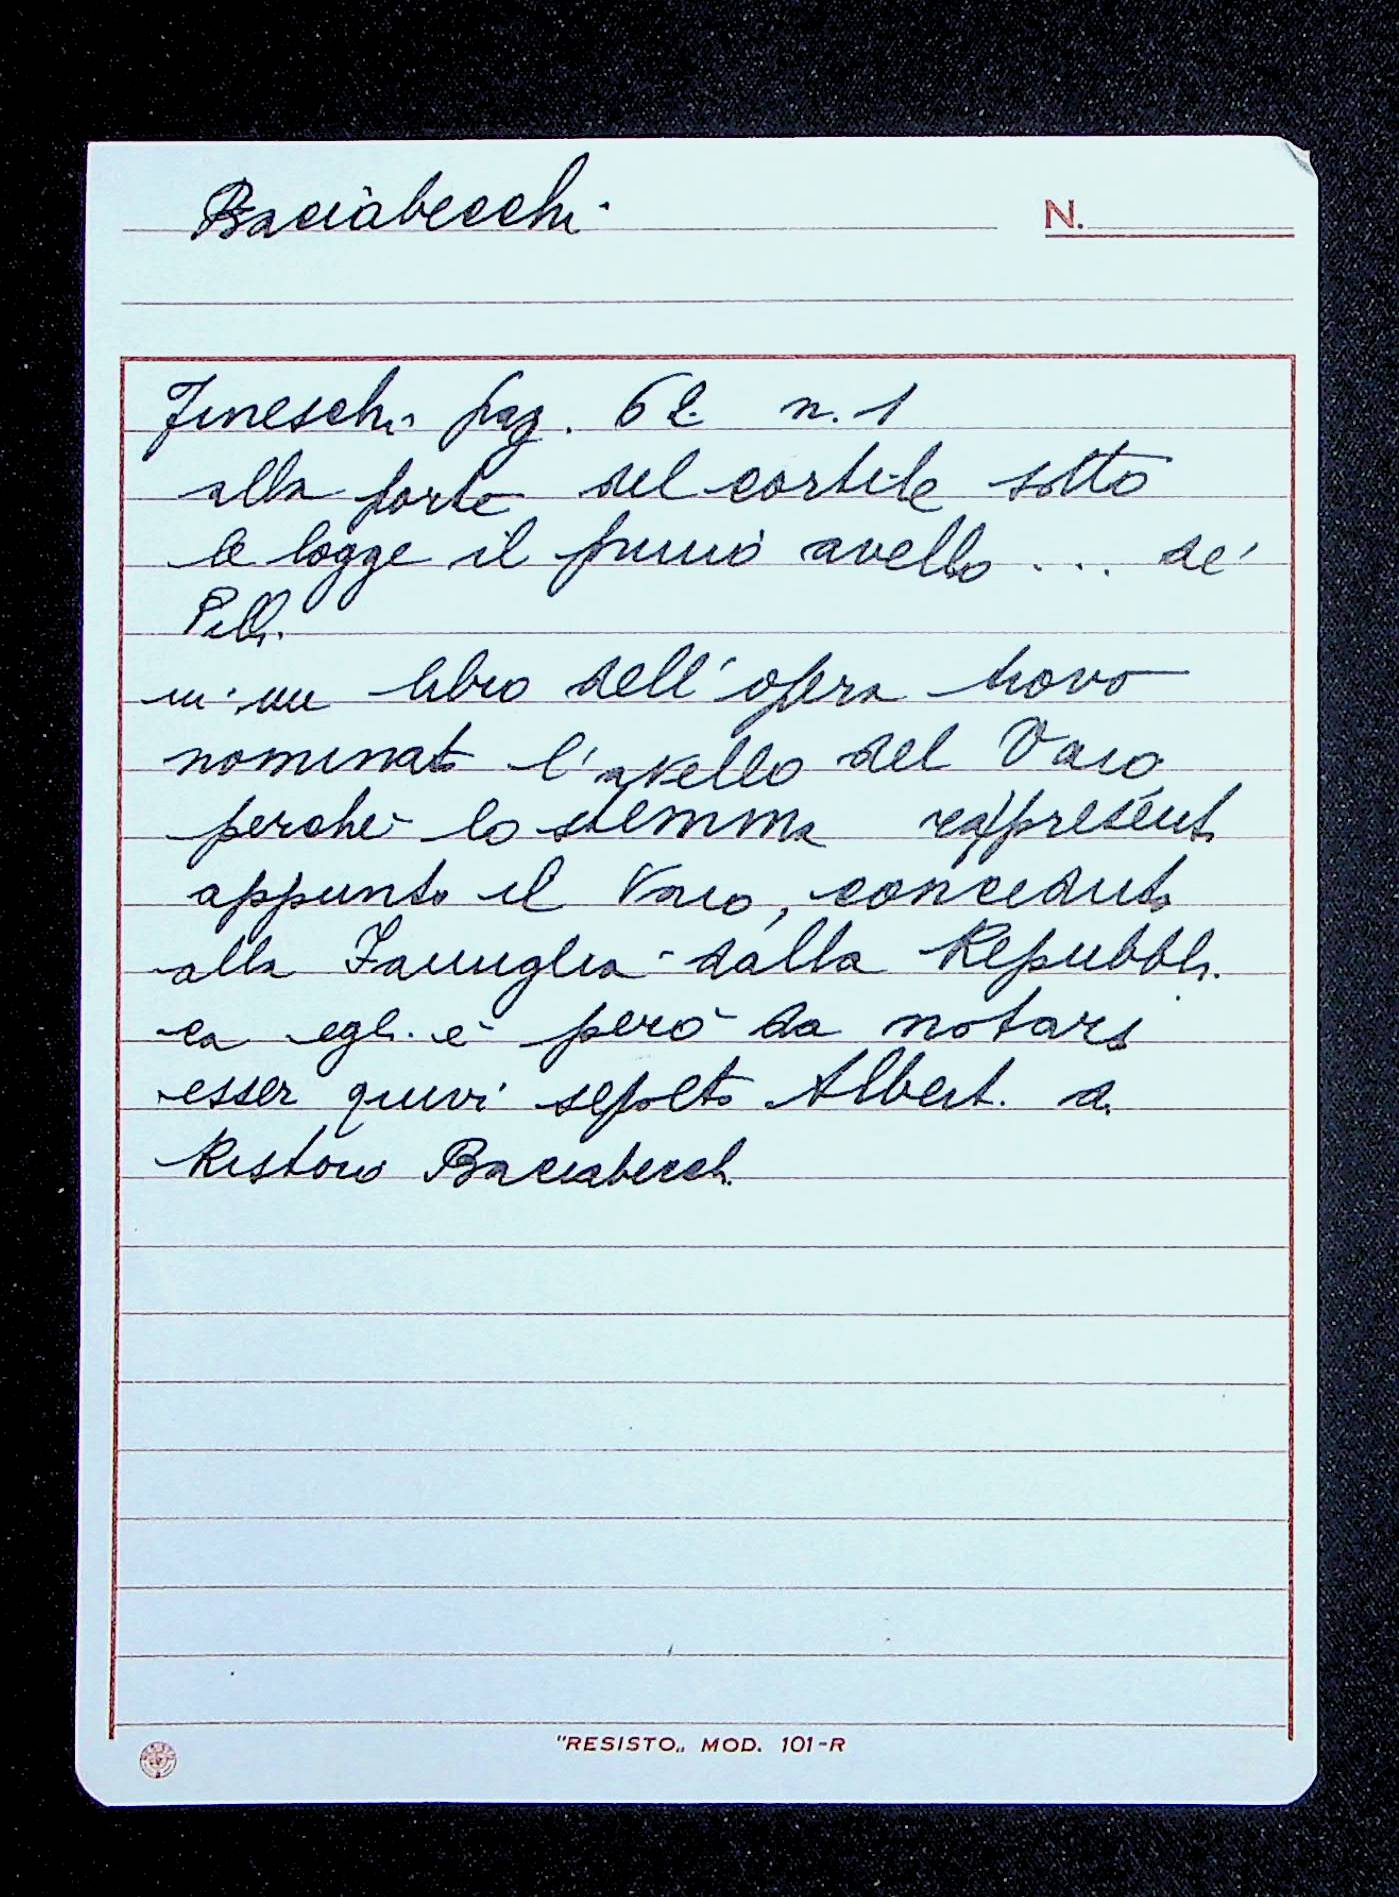 Baciabecchi
N.
Fineschi pag. 62 n. 1
alla porta del cortile sotto
le logge il primo avello ... de'
Pilli.
in un libro dell'opera trovo
nominato l'avello del Vaio
perchè lo stemma rappresenta
appunto il Vaio, conceduto
alla Famiglia dalla Repubbli
ca egli è però da notarsi
esser quivi sepolto Alberto di
Ristoro Baciabecchi
"RESISTO„ MOD. 101-R